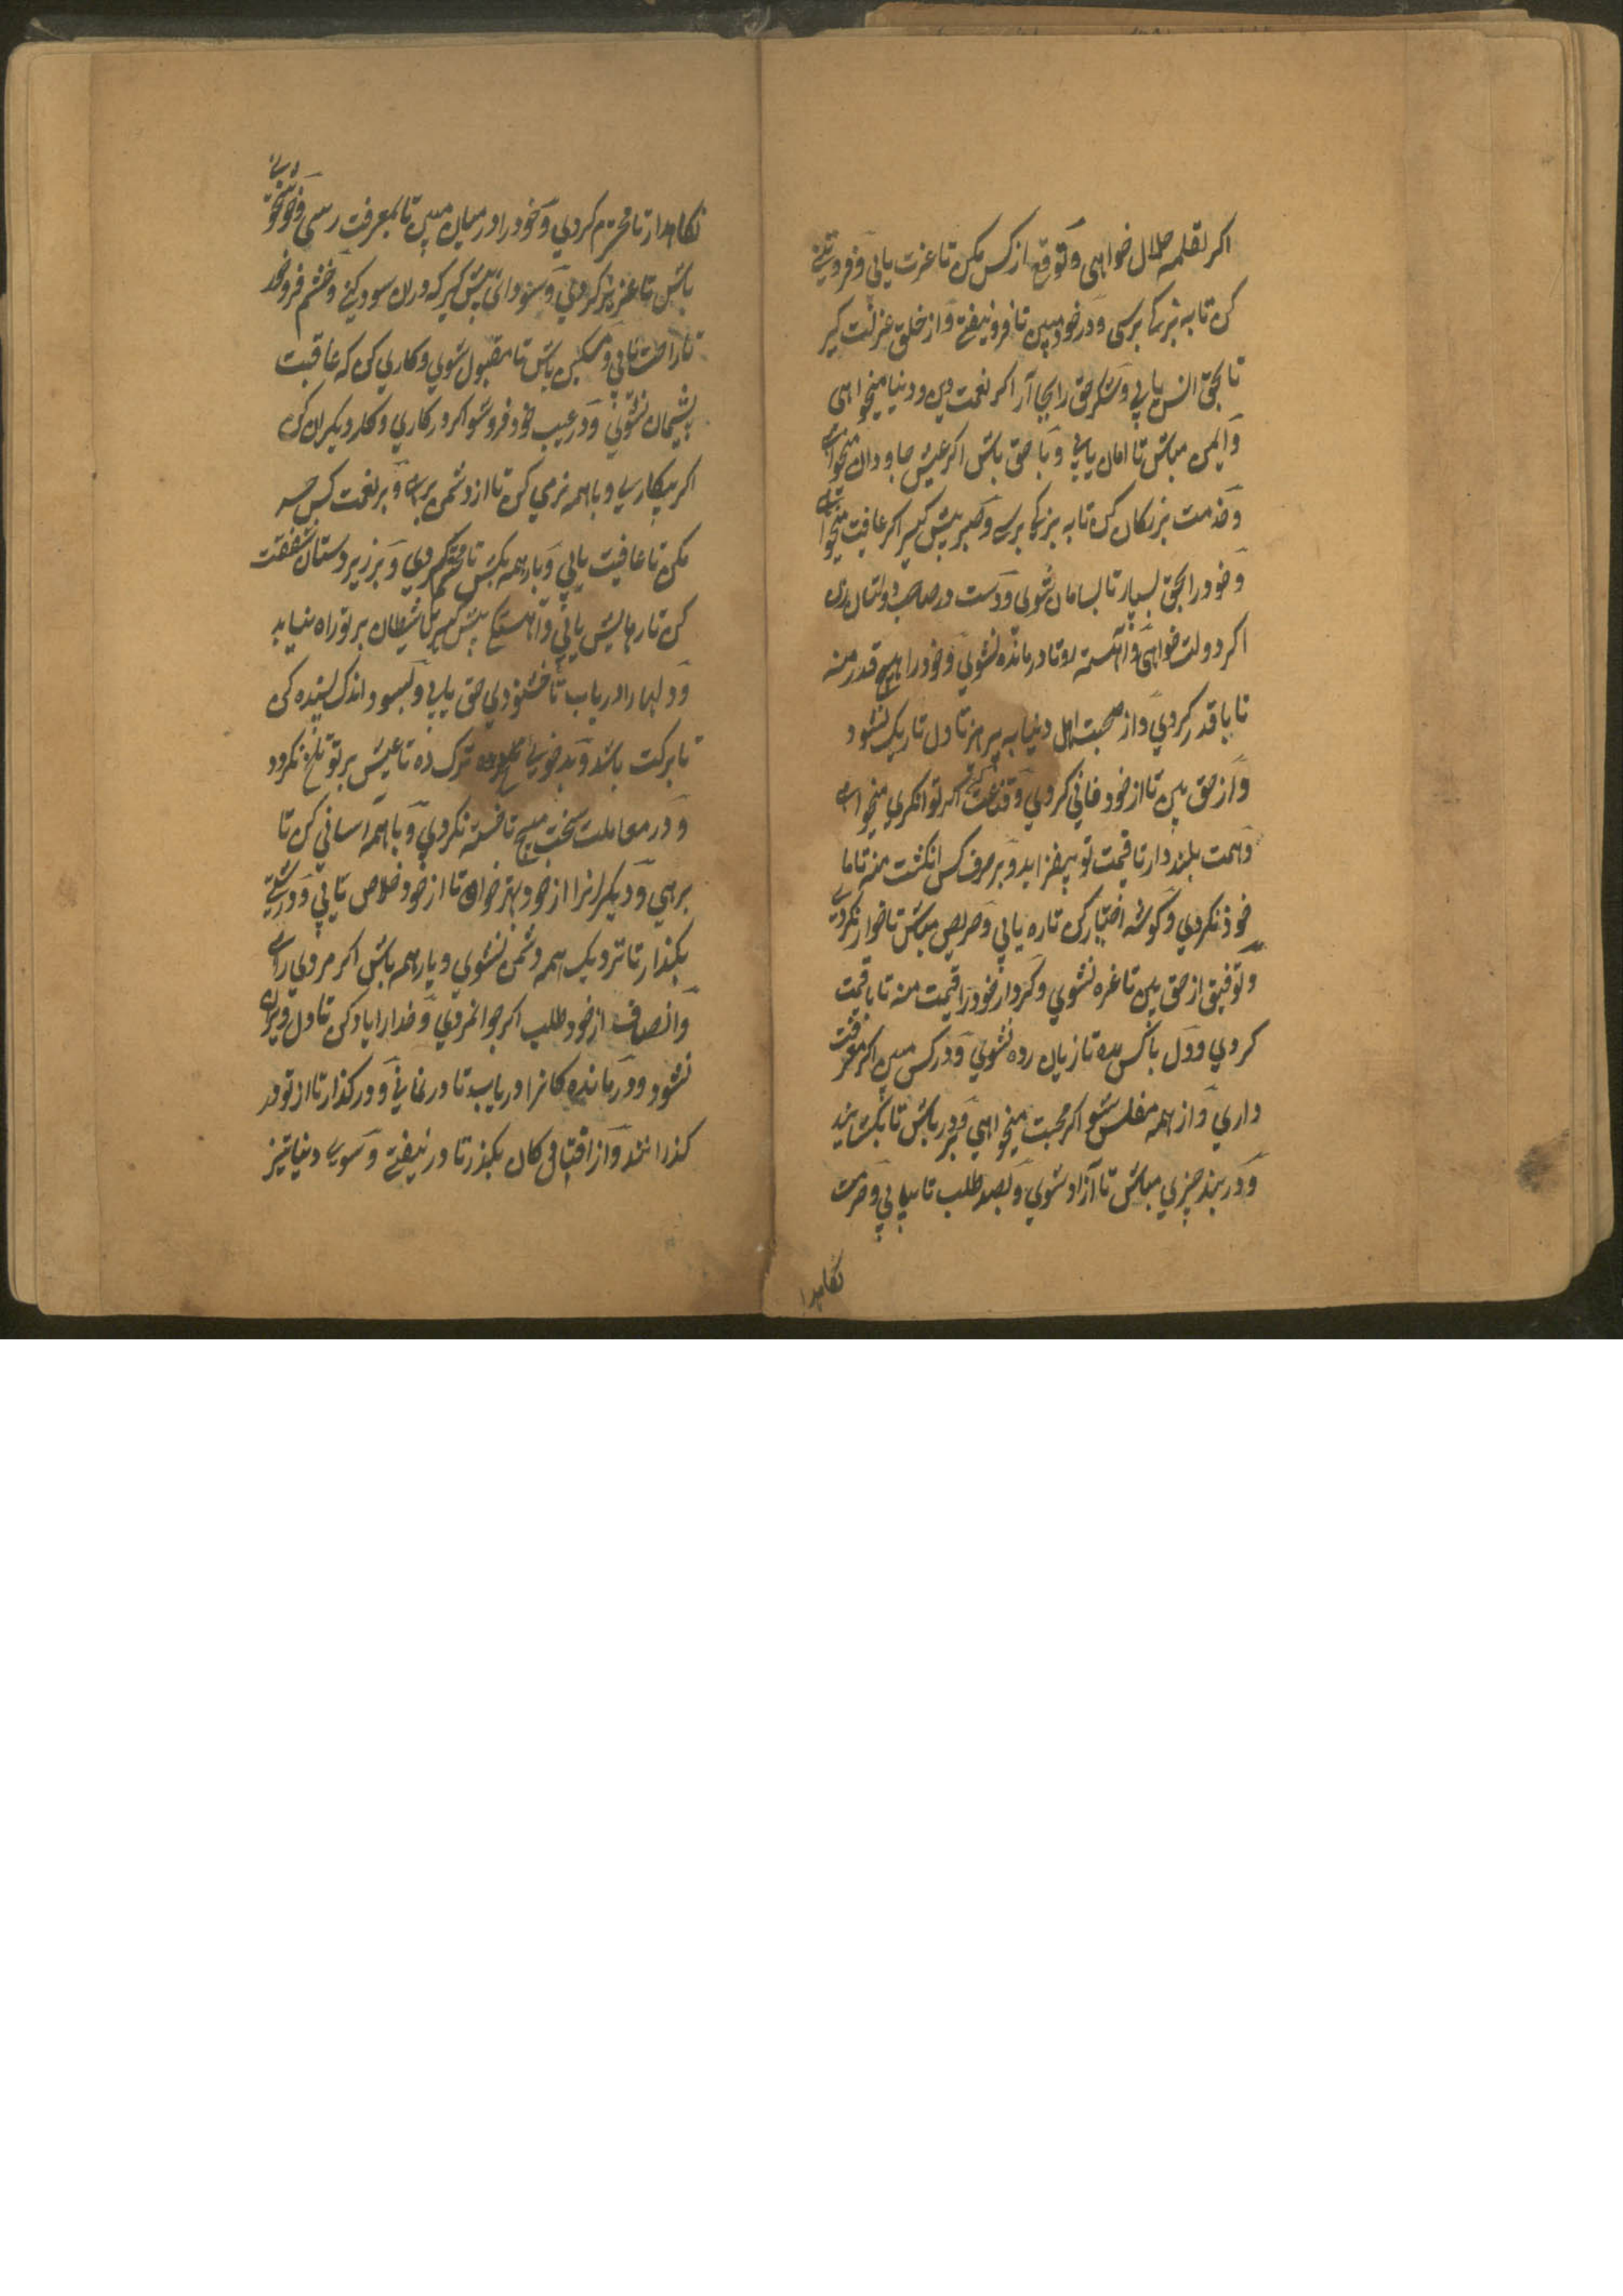 اکر لقمه حلال خواهی و توقع از کس مکن تا عزت یابی و فروتنی
کن تا به بزرکی برسی و در خود مبین تا فرو نیفتی و از خلق عزلت کیر
تا بحق انس یابی و شکر حق را بجا آر اکر نعمت دین و دنیا میخواهی
و ایمن مباش تا امان یابی و با حق باش اکر عیش جاودان میخواهی
و خدمت بزرکان کن تا به بزرکی برسی و صبر پیش کیر اکر عافیت میخواهی
و خود را بحق بسپار تا بسامان شوی و دست در صاحب دولتان زن
اکر دولت خواهی و آهسته رو تا درمانده نشوی و خود را هیچ قدر منه
تا با قدر کردی و از صحبت اهل دنیا به پرهیز تا دل تاریک نشود
و از حق بین تا از خود فانی کردی و قناعت کن اکر توانکری میخواهی
و همت بلند دار تا قیمت تو بیفزاید و بر حرف کس انکشت منه تا ما
خوذ نکردی و کوشه اختیار کن تا ره یابی و حریص مباش تا خوار نکردی
و توفیق از حق بین تا غره نشوی و کردار خود را قیمت منه تا با قیمت
کردی و دل با کس مده تا زیان زده نشوی و در کس مبین اکر معرفت
داری و از همه مفلس شو اکر محبت میخواهی و بر در باش تا بکشایند
و در بند چیزی مباش تا آزاد شوی و بصد طلب تا بیابی و حرمت
نکاهدا
نکاهدار تا محترم کردی و خود را در میان مبین تا بمعرفت رسی و خوشخوی
باش تا عزیز کردی و سودائی پیش کیر که در ان سود کنی و خشم فرو خور
تا راحت یابی و مسکین باش تا مقبول شوی و کاری کن که عاقبت
پشیمان نشوی و در عیب خود فرو شو اکر در کاری و کار دیکران کن
اکر بیکاری و با همه نرمی کن تا از دشمن برهی و بر نعمت کس حسد
مکن تا عافیت یابی و بار همه بکش تا محتشم کردی و بر زیر دستان شفقت
کن تا رهایش یابی و آهستکی پیش کیر تا شیطان بر تو راه نیابد
و دلها را دریاب تا خشنودی حق یابی و بسود اندک بسنده کن
تا برکت باشد و بدخویی ترک ده تا عیش بر تو تلخ نکردد
و در معاملت سخت مپیچ تا خسته نکردی و با همه آسانی کن تا
برهی و دیکرانرا از خود بهتر خوان تا از خود خلاص یابی و درشتی
بکذار تا نزدیک همه دشمن نشوی و یار همه باش اکر مرد راهی
و انصاف از خود طلب اکر جوانمردی و خدا را یاد کن تا دل ویران
نشود و درماندکانرا دریاب تا در نمانی و در کذار تا از تو در
کذرانند و از افتادکان بکذر تا در نیفتی و سوی دنیا تیز